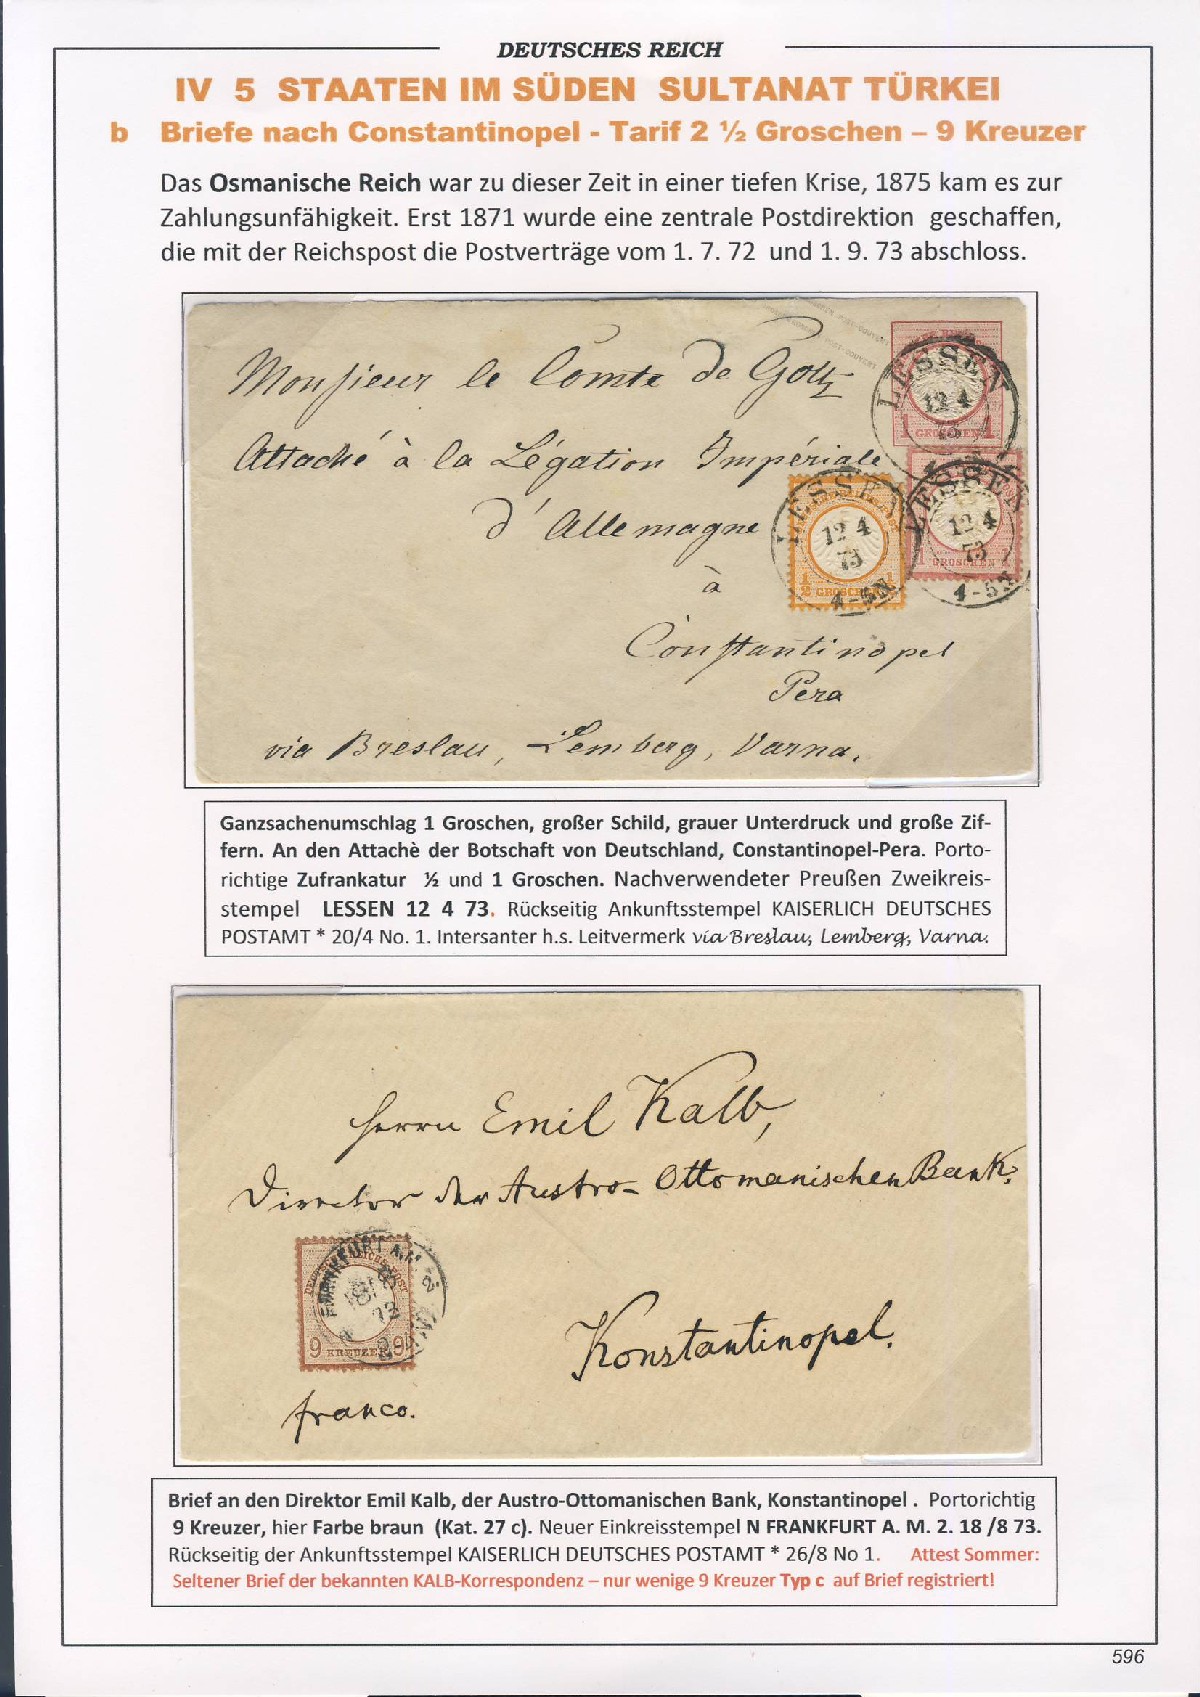 DEUTSCHES REICH
IV 5 STAATEN IM SÜDEN SULTANAT TÜRKEI
b Briefe nach Constantinopel - Tarif 2 ½ Groschen – 9 Kreuzer
Das Osmanische Reich war zu dieser Zeit in einer tiefen Krise, 1875 kam es zur
Zahlungsunfähigkeit. Erst 1871 wurde eine zentrale Postdirektion geschaffen,
die mit der Reichspost die Postverträge vom 1. 7. 72 und 1. 9. 73 abschloss.
Monsieur le Comte de Goltz
Attaché à la Légation Impériale
d'Allemagne
à
Constantinopel
Pera
via Breslau, Lemberg, Varna.
LESSEN
12 4
73
1 GROSCHEN 1
LESSEN
12 4
73
4-5N
½ GROSCHEN
LESSEN
12 4
73
4-5N
1 GROSCHEN
Ganzsachenumschlag 1 Groschen, großer Schild, grauer Unterdruck und große Zif-
fern. An den Attachè der Botschaft von Deutschland, Constantinopel-Pera. Porto-
richtige Zufrankatur ½ und 1 Groschen. Nachverwendeter Preußen Zweikreis-
stempel LESSEN 12 4 73. Rückseitig Ankunftsstempel KAISERLICH DEUTSCHES
POSTAMT * 20/4 No. 1. Intersanter h.s. Leitvermerk via Breslau, Lemberg, Varna.
Herrn Emil Kalb,
Director der Austro-Ottomanischen Bank.
Konstantinopel.
FRANKFURT A.M. 2
73
9 KREUZER 9
franco.
Brief an den Direktor Emil Kalb, der Austro-Ottomanischen Bank, Konstantinopel . Portorichtig
9 Kreuzer, hier Farbe braun (Kat. 27 c). Neuer Einkreisstempel N FRANKFURT A. M. 2. 18 /8 73.
Rückseitig der Ankunftsstempel KAISERLICH DEUTSCHES POSTAMT * 26/8 No 1. Attest Sommer:
Seltener Brief der bekannten KALB-Korrespondenz – nur wenige 9 Kreuzer Typ c auf Brief registriert!
596